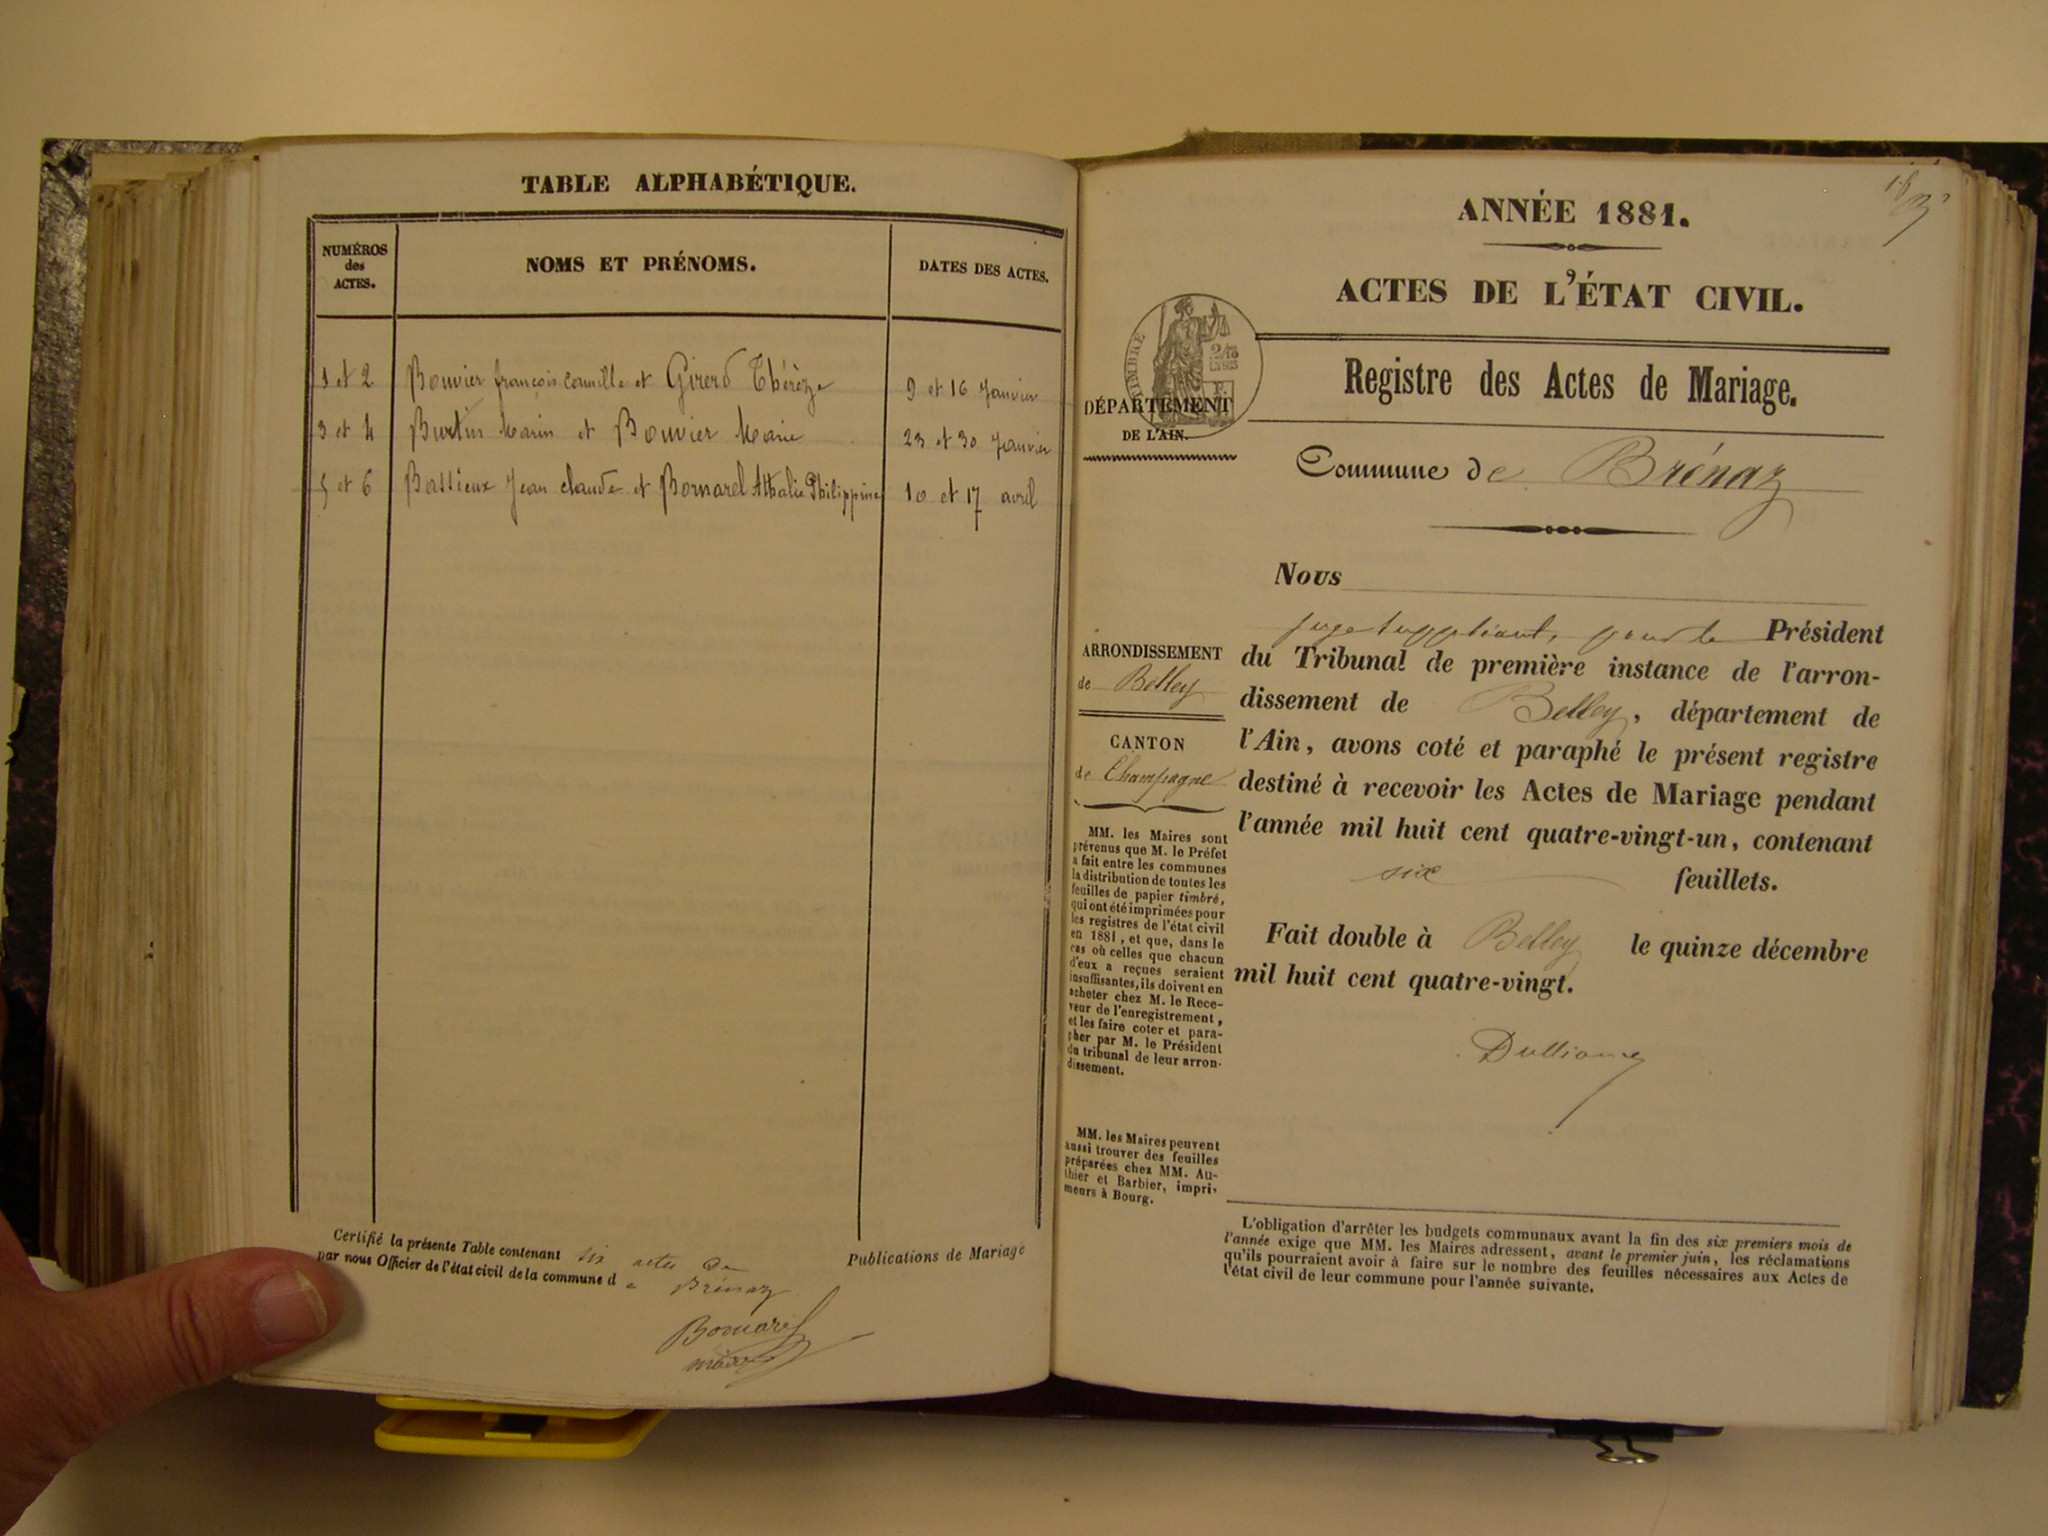 TABLE ALPHABÉTIQUE.
NUMÉROS
des
ACTES.
NOMS ET PRÉNOMS.
DATES DES ACTES.
1 et 2 Bouvier françois Camille et Girerd Thérèze 9 et 16 Janvier
3 et 4 Burtin Marin et Bouvier Marie 23 et 30 Janvier
5 et 6 Bassieux Jean Claude et Bornarel Athalie Philippine 10 et 17 avril
Certifié la présente Table contenant six actes de Publications de Mariage
par nous Officier de l'état civil de la commune de Brénaz
Bornarel
maire
ANNÉE 1881.
ACTES DE L'ÉTAT CIVIL.
TIMBRE
DÉPARTEMENT
DE L'AIN.
Registre des Actes de Mariage.
Commune de Brénaz
ARRONDISSEMENT
de Belley
CANTON
de Champagne
MM. les Maires sont
prévenus que M. le Préfet
a fait entre les communes
la distribution de toutes les
feuilles de papier timbré,
qui ont été imprimées pour
les registres de l'état civil
en 1881, et que, dans le
cas où celles que chacun
d'eux a reçues seraient
insuffisantes, ils doivent en
acheter chez M. le Rece-
veur de l'enregistrement,
et les faire coter et para-
pher par M. le Président
du tribunal de leur arron-
dissement.
MM. les Maires peuvent
aussi trouver des feuilles
préparées chez MM. Au-
thier et Barbier, impri-
meurs à Bourg.
Nous
juge suppléant, pour le Président
du Tribunal de première instance de l'arron-
dissement de Belley, département de
l'Ain, avons coté et paraphé le présent registre
destiné à recevoir les Actes de Mariage pendant
l'année mil huit cent quatre-vingt-un, contenant
six feuillets.
Fait double à Belley le quinze décembre
mil huit cent quatre-vingt.
L'obligation d'arrêter les budgets communaux avant la fin des six premiers mois de
l'année exige que MM. les Maires adressent, avant le premier juin, les réclamations
qu'ils pourraient avoir à faire sur le nombre des feuilles nécessaires aux Actes de
l'état civil de leur commune pour l'année suivante.